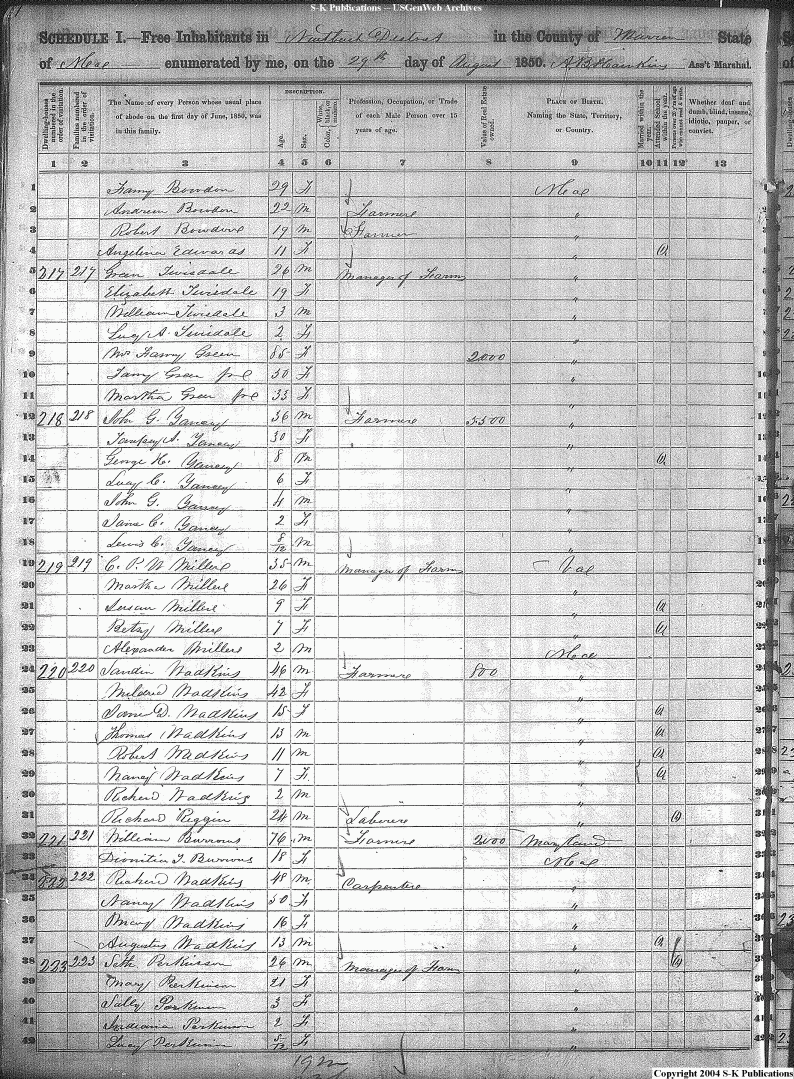 S-K Publications – USGenWeb Archives
SCHEDULE I.—Free Inhabitants in District in the County of Warren State
of enumerated by me, on the 29th day of August 1850. Ass't Marshal.
Dwelling-houses numbered in the order of visitation.
Families numbered in the order of visitation.
The Name of every Person whose usual place of abode on the first day of June, 1850, was in this family.
DESCRIPTION.
Age.
Sex.
White, black, or mulatto.
Profession, Occupation, or Trade of each Male Person over 15 years of age.
Value of Real Estate owned.
PLACE OF BIRTH. Naming the State, Territory, or Country.
Married within the year.
Attended School within the year.
Persons over 20 y'rs of age who cannot read & write.
Whether deaf and dumb, blind, insane, idiotic, pauper, or convict.
1 2 3 4 5 6 7 8 9 10 11 12 13
1 Bowdon 29 F
2 Andrew Bowdon 22 M Farmere "
3 Robert Bowdere 19 M Farmer "
4 Angelina Edwards 11 F "
5 217 217 Green Twisdale 26 M Manager of Farm "
6 Elizabeth Twisdale 19 F "
7 William Twisdale 3 M "
8 Lucy A. Twisdale 2 F "
9 Mrs Green 85 F 2000 "
10 Green 50 F "
11 Martha Green 33 F "
12 218 218 John G. Yancey 36 M Farmere 5500 "
13 A. Yancey 30 F "
14 George H. Yancey 8 M "
15 Lucy C. Yancey 6 F "
16 John G. Yancey 4 M "
17 Jane C. Yancey 2 F "
18 Lewis C. Yancey 8/12 M "
19 219 219 C. P. W. Millere 35 M Manager of Farm
20 Martha Millere 26 F "
21 Susan Millere 9 F "
22 Betsy Millere 7 F "
23 Alexander Millere 2 M
24 220 220 Wadkins 46 M Farmere 800 "
25 Mildred Wadkins 42 F "
26 Jane D. Wadkins 15 F "
27 Thomas Wadkins 13 M "
28 Robert Wadkins 11 M "
29 Nancy Wadkins 7 F "
30 Richerd Wadkins 2 M "
31 Richard Riggin 24 M Laborere "
32 221 221 William Burrows 76 M Farmere 2000 Maryland
33 Burrows 18 F
34 222 222 Richerd Wadkins 48 M Carpentere "
35 Nancy Wadkins 50 F "
36 Mary Wadkins 16 F "
37 Augustus Wadkins 13 M "
38 223 223 Seth Perkinson 26 M Manager of Farm "
39 Mary Perkinson 21 F "
40 Sally Perkinson 3 F "
41 Indiana Perkinson 2 F "
42 Lucy Perkinson 5/12 F "
Copyright 2004 S-K Publications